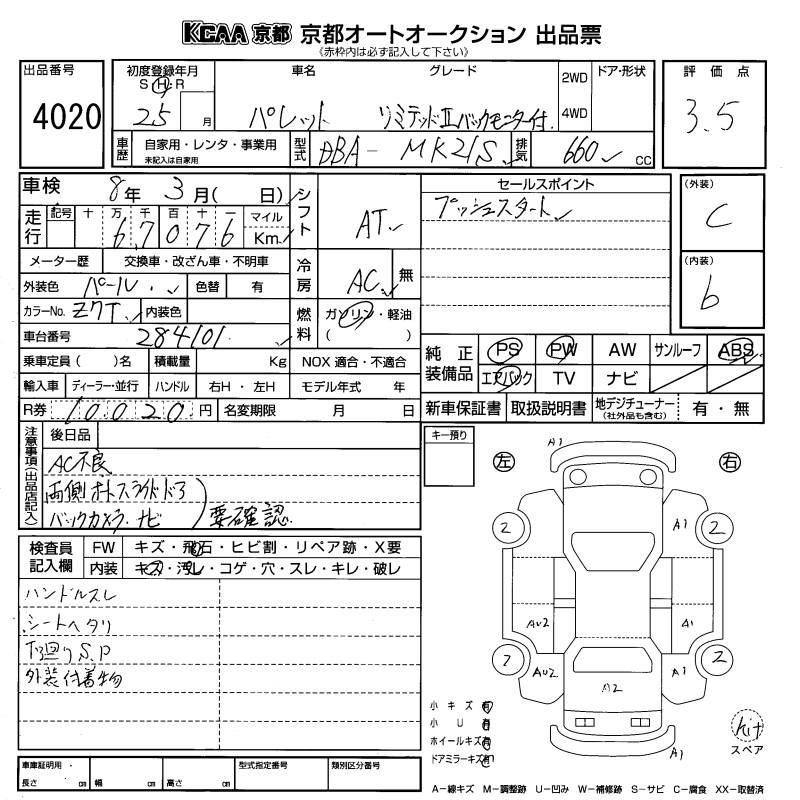 KCAA 京都 京都オートオークション 出品票
《赤枠内は必ず記入して下さい》
出品番号 初度登録年月 車名 グレード 2WD ドア・形状 評価点
S H R
4020 25 月 パレット リミテッドⅡバックモニター付 4WD 3.5
車歴 自家用・レンタ・事業用 型式 DBA-MK21S 排気 660 cc
未記入は自家用
車検 8年 3月( 日) シフト AT セールスポイント (外装)
プッシュスタート C
走行 記号 十 万 千 百 十 一 マイル
6 7 0 7 6 Km
メーター歴 交換車・改ざん車・不明車 冷房 AC 無 (内装)
外装色 パール 色替 有 b
カラーNo. Z7T 内装色 燃料 ガソリン・軽油
( )
車台番号 284101
乗車定員( )名 積載量 Kg NOX 適合・不適合 純正装備品 PS PW AW サンルーフ ABS
輸入車 ディーラー・並行 ハンドル 右H・左H モデル年式 年 エアバック TV ナビ
R券 10020円 名変期限 月 日 新車保証書 取扱説明書 地デジチューナー(社外品も含む) 有・無
注意事項(出品店記入) 後日品 キー預り
AC不良
両側オートスライドドア
バックカメラ ナビ 要確認
左 右
A1
2 A1 2
AU2 A1
7 AU2 A2 A1 2
A1
検査員記入欄 FW キズ・飛石・ヒビ割・リペア跡・X要
内装 キズ・汚レ・コゲ・穴・スレ・キレ・破レ
ハンドルスレ
シートヘタリ
下廻りS.P
外装付着物
小キズ 有
小U 有
ホイールキズ 有
ドアミラーキズ 有
kit
スペア
車庫証明用・ 型式指定番号 類別区分番号
長さ cm 幅 cm 高さ cm
A-線キズ M-調整跡 U-凹み W-補修跡 S-サビ C-腐食 XX-取替済